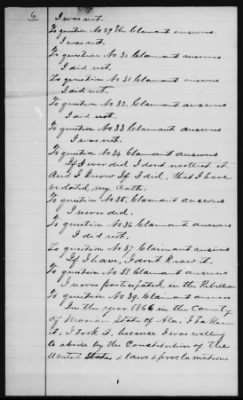 6
I was not.
To question No 29 the Claimant answers
I was not.
To question No 30 Claimant answers
I did not.
To question No 31 Claimant answers
I did not.
To question No 32. Claimant answers
I did not.
To question No 33 Claimant answers
I was not.
To question No 34 Claimant answers
If I ever did I don't recollect it
And I know if I did, that I have
violated my Oath.
To question No 35. Claimant answers
I never did.
To question No 36 Claimant answers
I did not.
To question No 37 Claimant answers
If I have, I don't know it.
To question No 38 Claimant answers
I never participated in the Rebellion
To question No 39. Claimant answers
In the year 1866 in the County
of State of Ala, I
it, I took it, because I was willing
to abide by the Constitution of the
United States & laws & proclamations